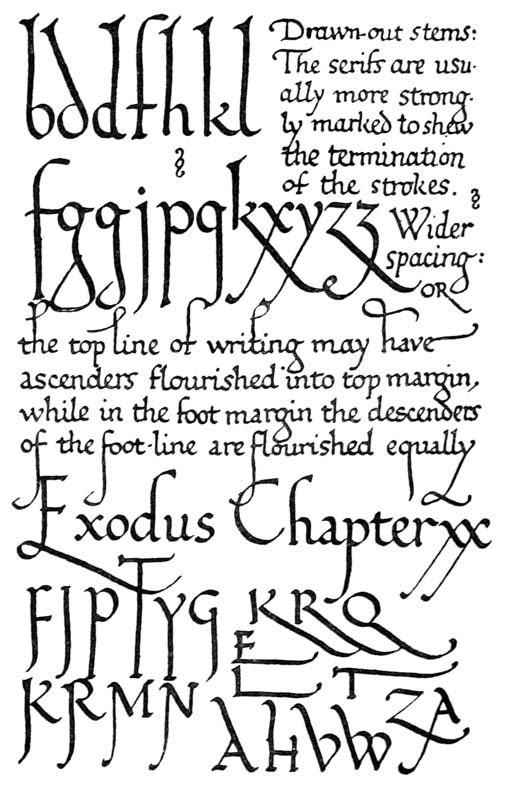 bddfhkl
Drawn-out stems:
The serifs are usu-
ally more strong-
ly marked to shew
the termination
of the strokes.
fggjpqkxyzz
Wider
spacing:
OR
the top line of writing may have
ascenders flourished into top margin,
while in the foot margin the descenders
of the foot-line are flourished equally
Exodus Chapter xx
FJPTYG
KRQ
E
L T
KRMN
AHVW
ZA